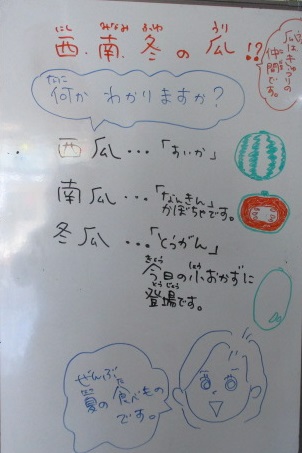 にし みなみ ふゆ うり
西・南・冬の瓜!?
瓜はキュウリの
仲間です。
なに
何かわかりますか?
西瓜…「すいか」
南瓜…「なんきん」
かぼちゃです。
冬瓜…「とうがん」
きょう しょう
今日の小おかずに
とうじょう
登場です。
ぜんぶ
夏の食べもの
です。